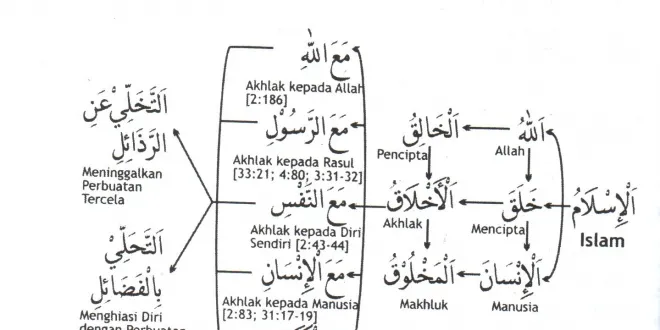 اَلْإِسْلَامُ
Islam
اَللّٰهُ
Allah
خَلَقَ
Mencipta
اَلْإِنْسَانَ
Manusia
اَلْخَالِقُ
Pencipta
اَلْأَخْلَاقُ
Akhlak
اَلْمَخْلُوْقُ
Makhluk
مَعَ اللّٰهِ
Akhlak kepada Allah
[2:186]
مَعَ الرَّسُوْلِ
Akhlak kepada Rasul
[33:21; 4:80; 3:31-32]
مَعَ النَّفْسِ
Akhlak kepada Diri
Sendiri [2:43-44]
مَعَ الْإِنْسَانِ
Akhlak kepada Manusia
[2:83; 31:17-19]
اَلتَّخَلِّيْ عَنِ
الرَّذَائِلِ
Meninggalkan
Perbuatan
Tercela
اَلتَّحَلِّيْ
بِالْفَضَائِلِ
Menghiasi Diri
dengan Perbuatan